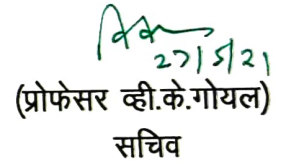 27/5/21
(प्रोफेसर व्ही.के.गोयल)
सचिव